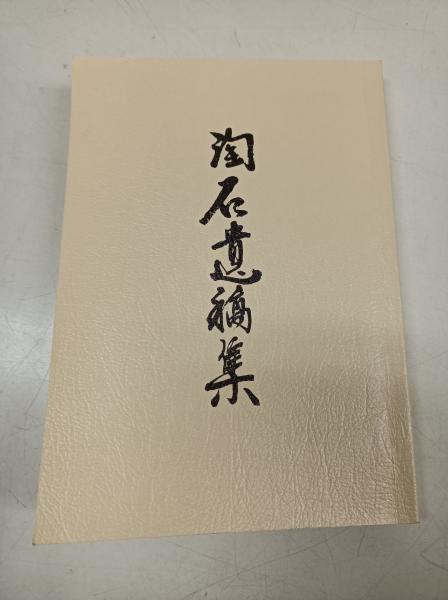 淘石遺稿集